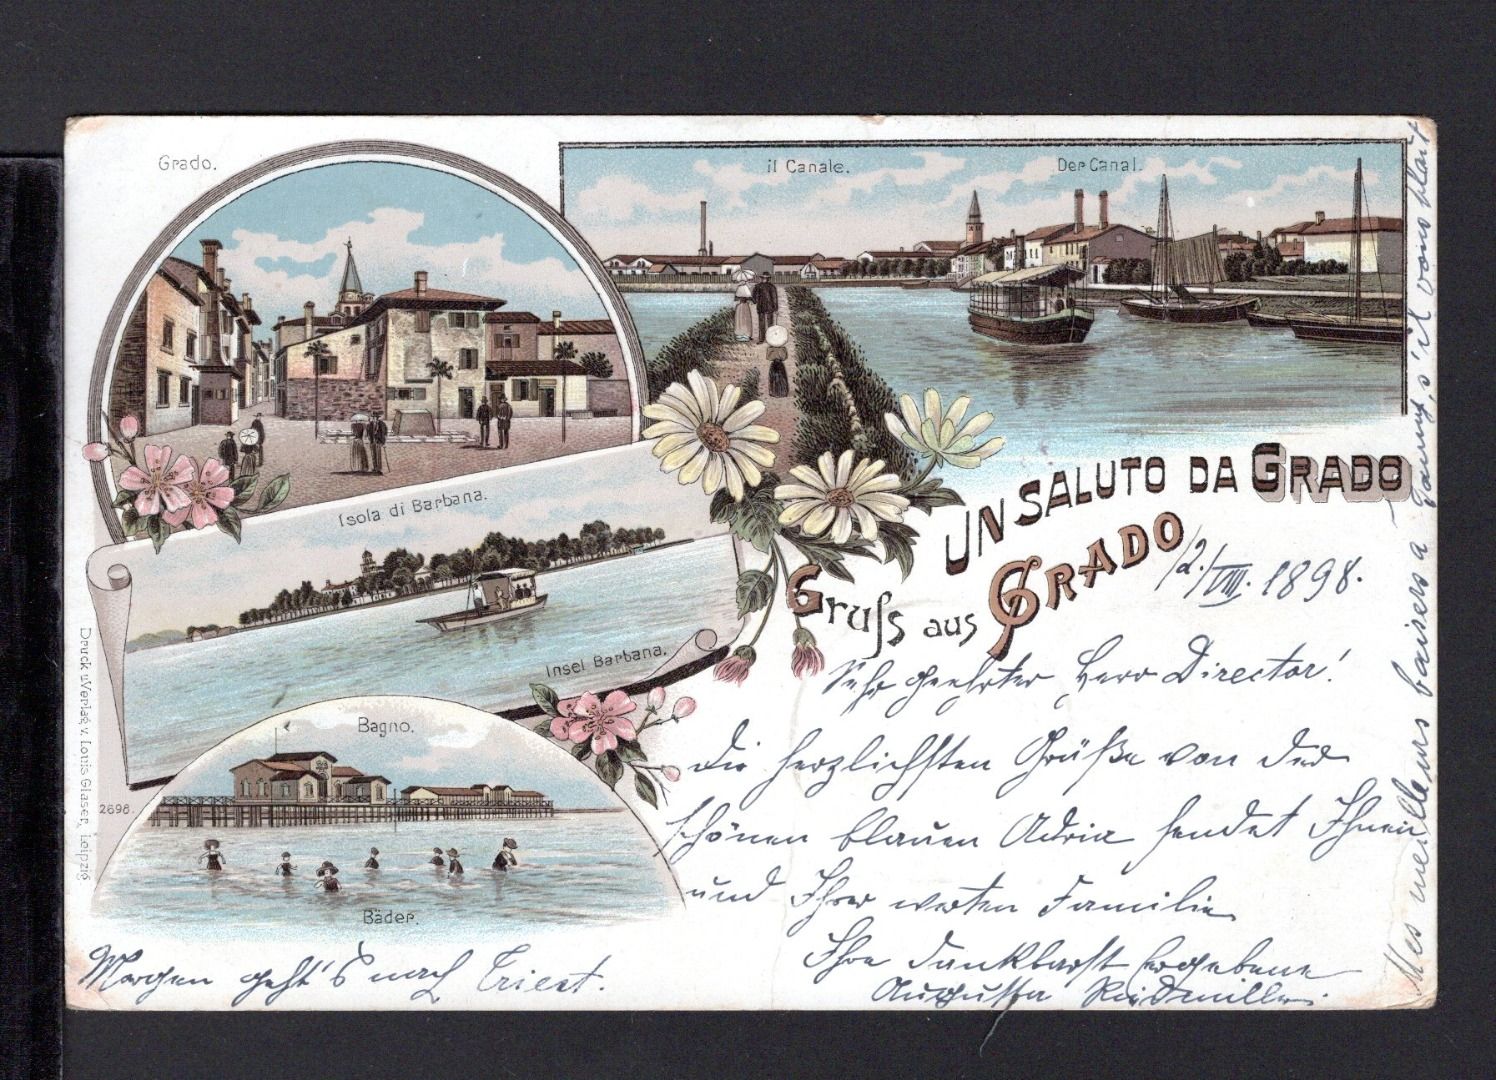 Grado.
il Canale.
Der Canal.
Isola di Barbana.
Insel Barbana.
UN SALUTO DA GRADO
Gruſs aus GRADO
12./VIII. 1898.
Sehr geehrter Herr Director!
Die herzlichsten Grüße von der
schönen blauen Adria sendet Ihnen
und Ihrer werten Familie
Ihre dankbarst ergebene
Augusta Riedmüller.
Bagno.
Bäder.
2698.
Druck u. Verlag v. Louis Glaser, Leipzig
Morgen geht's nach Triest.
Mes meilleurs baisers a Fanny, s'il vous plait